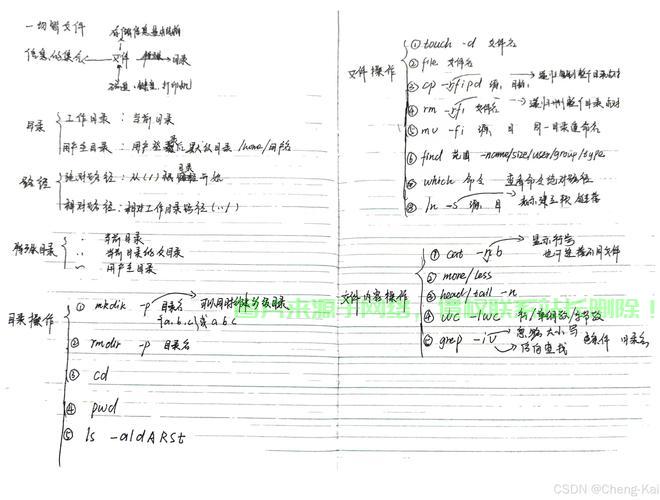 一切皆文件
存储信息 普通文件
信息的集合 文件 目录
磁盘、键盘、打印机
目录
工作目录：当前目录
用户主目录：用户登录后默认目录 /home/用户名
路径
绝对路径：从(/)根目录开始
相对路径：相对工作目录路径(../)
特殊目录
. 当前目录
.. 当前目录的父目录
~ 用户主目录
目录操作
① mkdir -p 目录名 可以同时创建多级目录
{a,b,c}或 a b c
② rmdir -p 目录名
③ cd
④ pwd
⑤ ls -aldARSt
文件操作
① touch -d 文件名
② file 文件名
③ cp -rfipd 源 目标 递归复制整个目录
④ rm -rfi 文件名 递归删除整个目录
⑤ mv -fi 源 目 同一目录重命名
⑥ find 范围 -name/size/user/group/type
⑦ which 命令 查看命令绝对路径
⑧ ln -s 源 目 表示建立软链接
文件内容操作
① cat -n b 显示行号
也可连接不同文件
② more/less
③ head/tail -n
④ wc -lwc 行/单词数/字节数
⑤ grep -iv 忽略大小写 条件 目录名
反向查找
图片来源于网络，侵权联系站长删除！
CSDN @Cheng-Kai